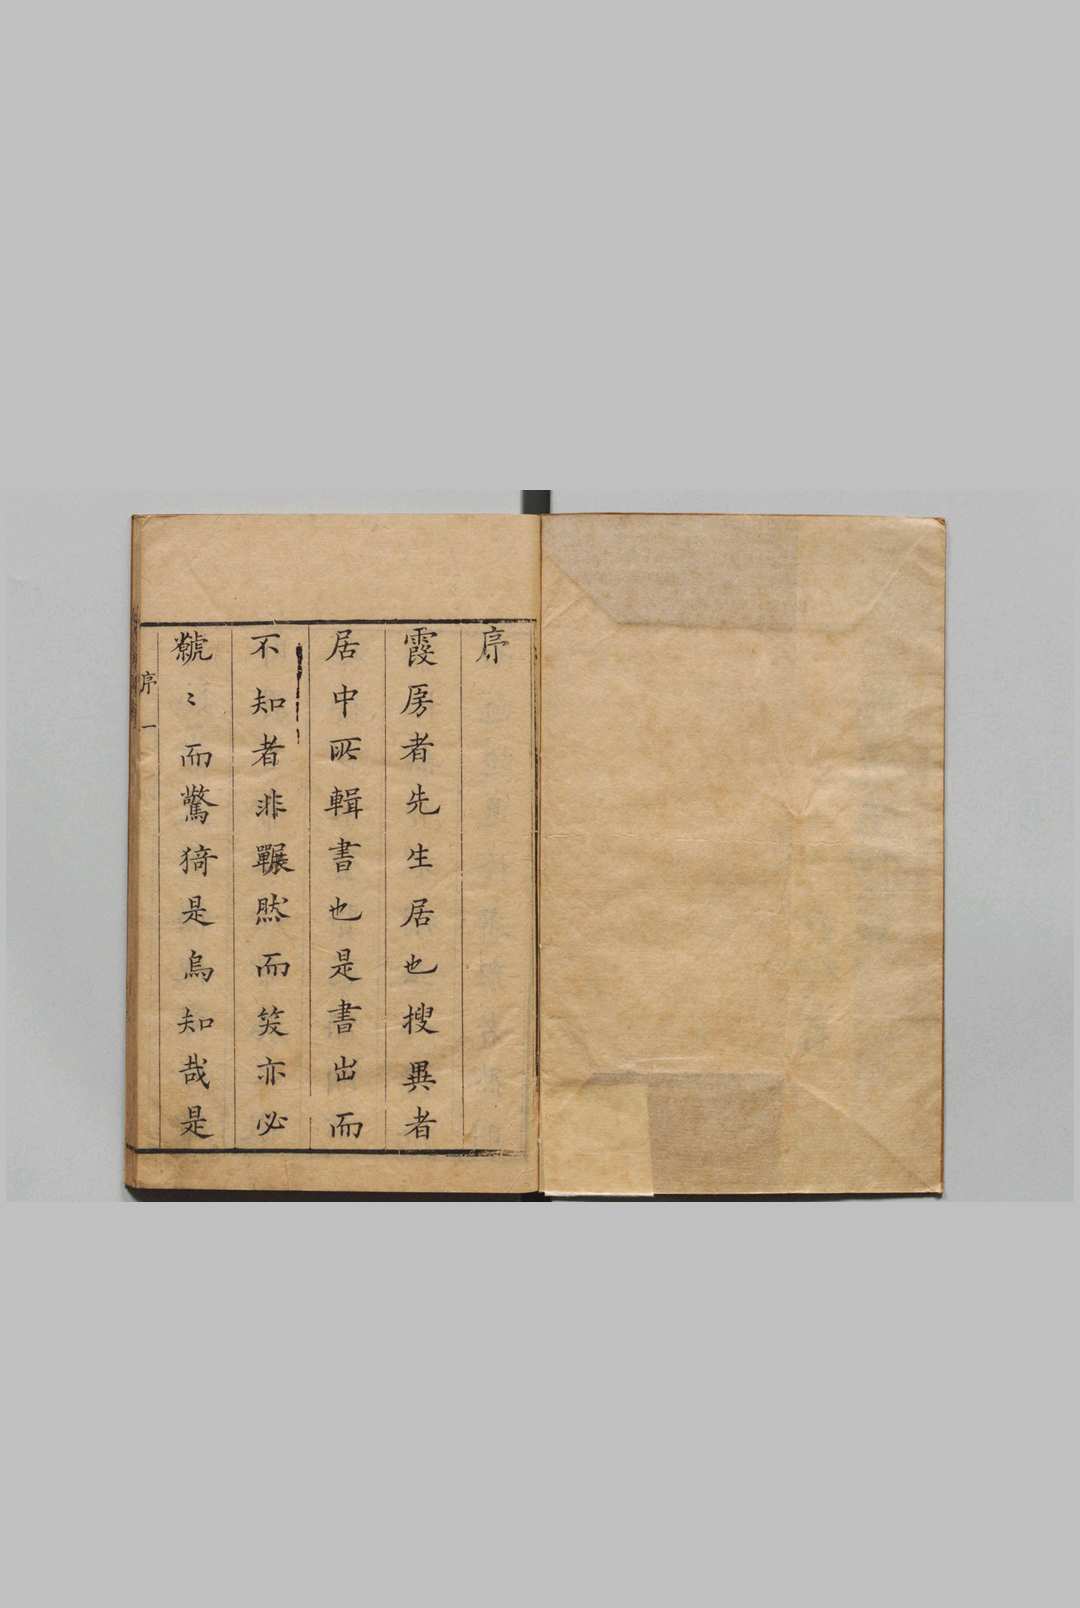 序
霞房者先生居也搜異者
居中所輯書也是書出而
不知者非囅然而笑亦必
虩〻而驚猗是烏知哉是
序 一